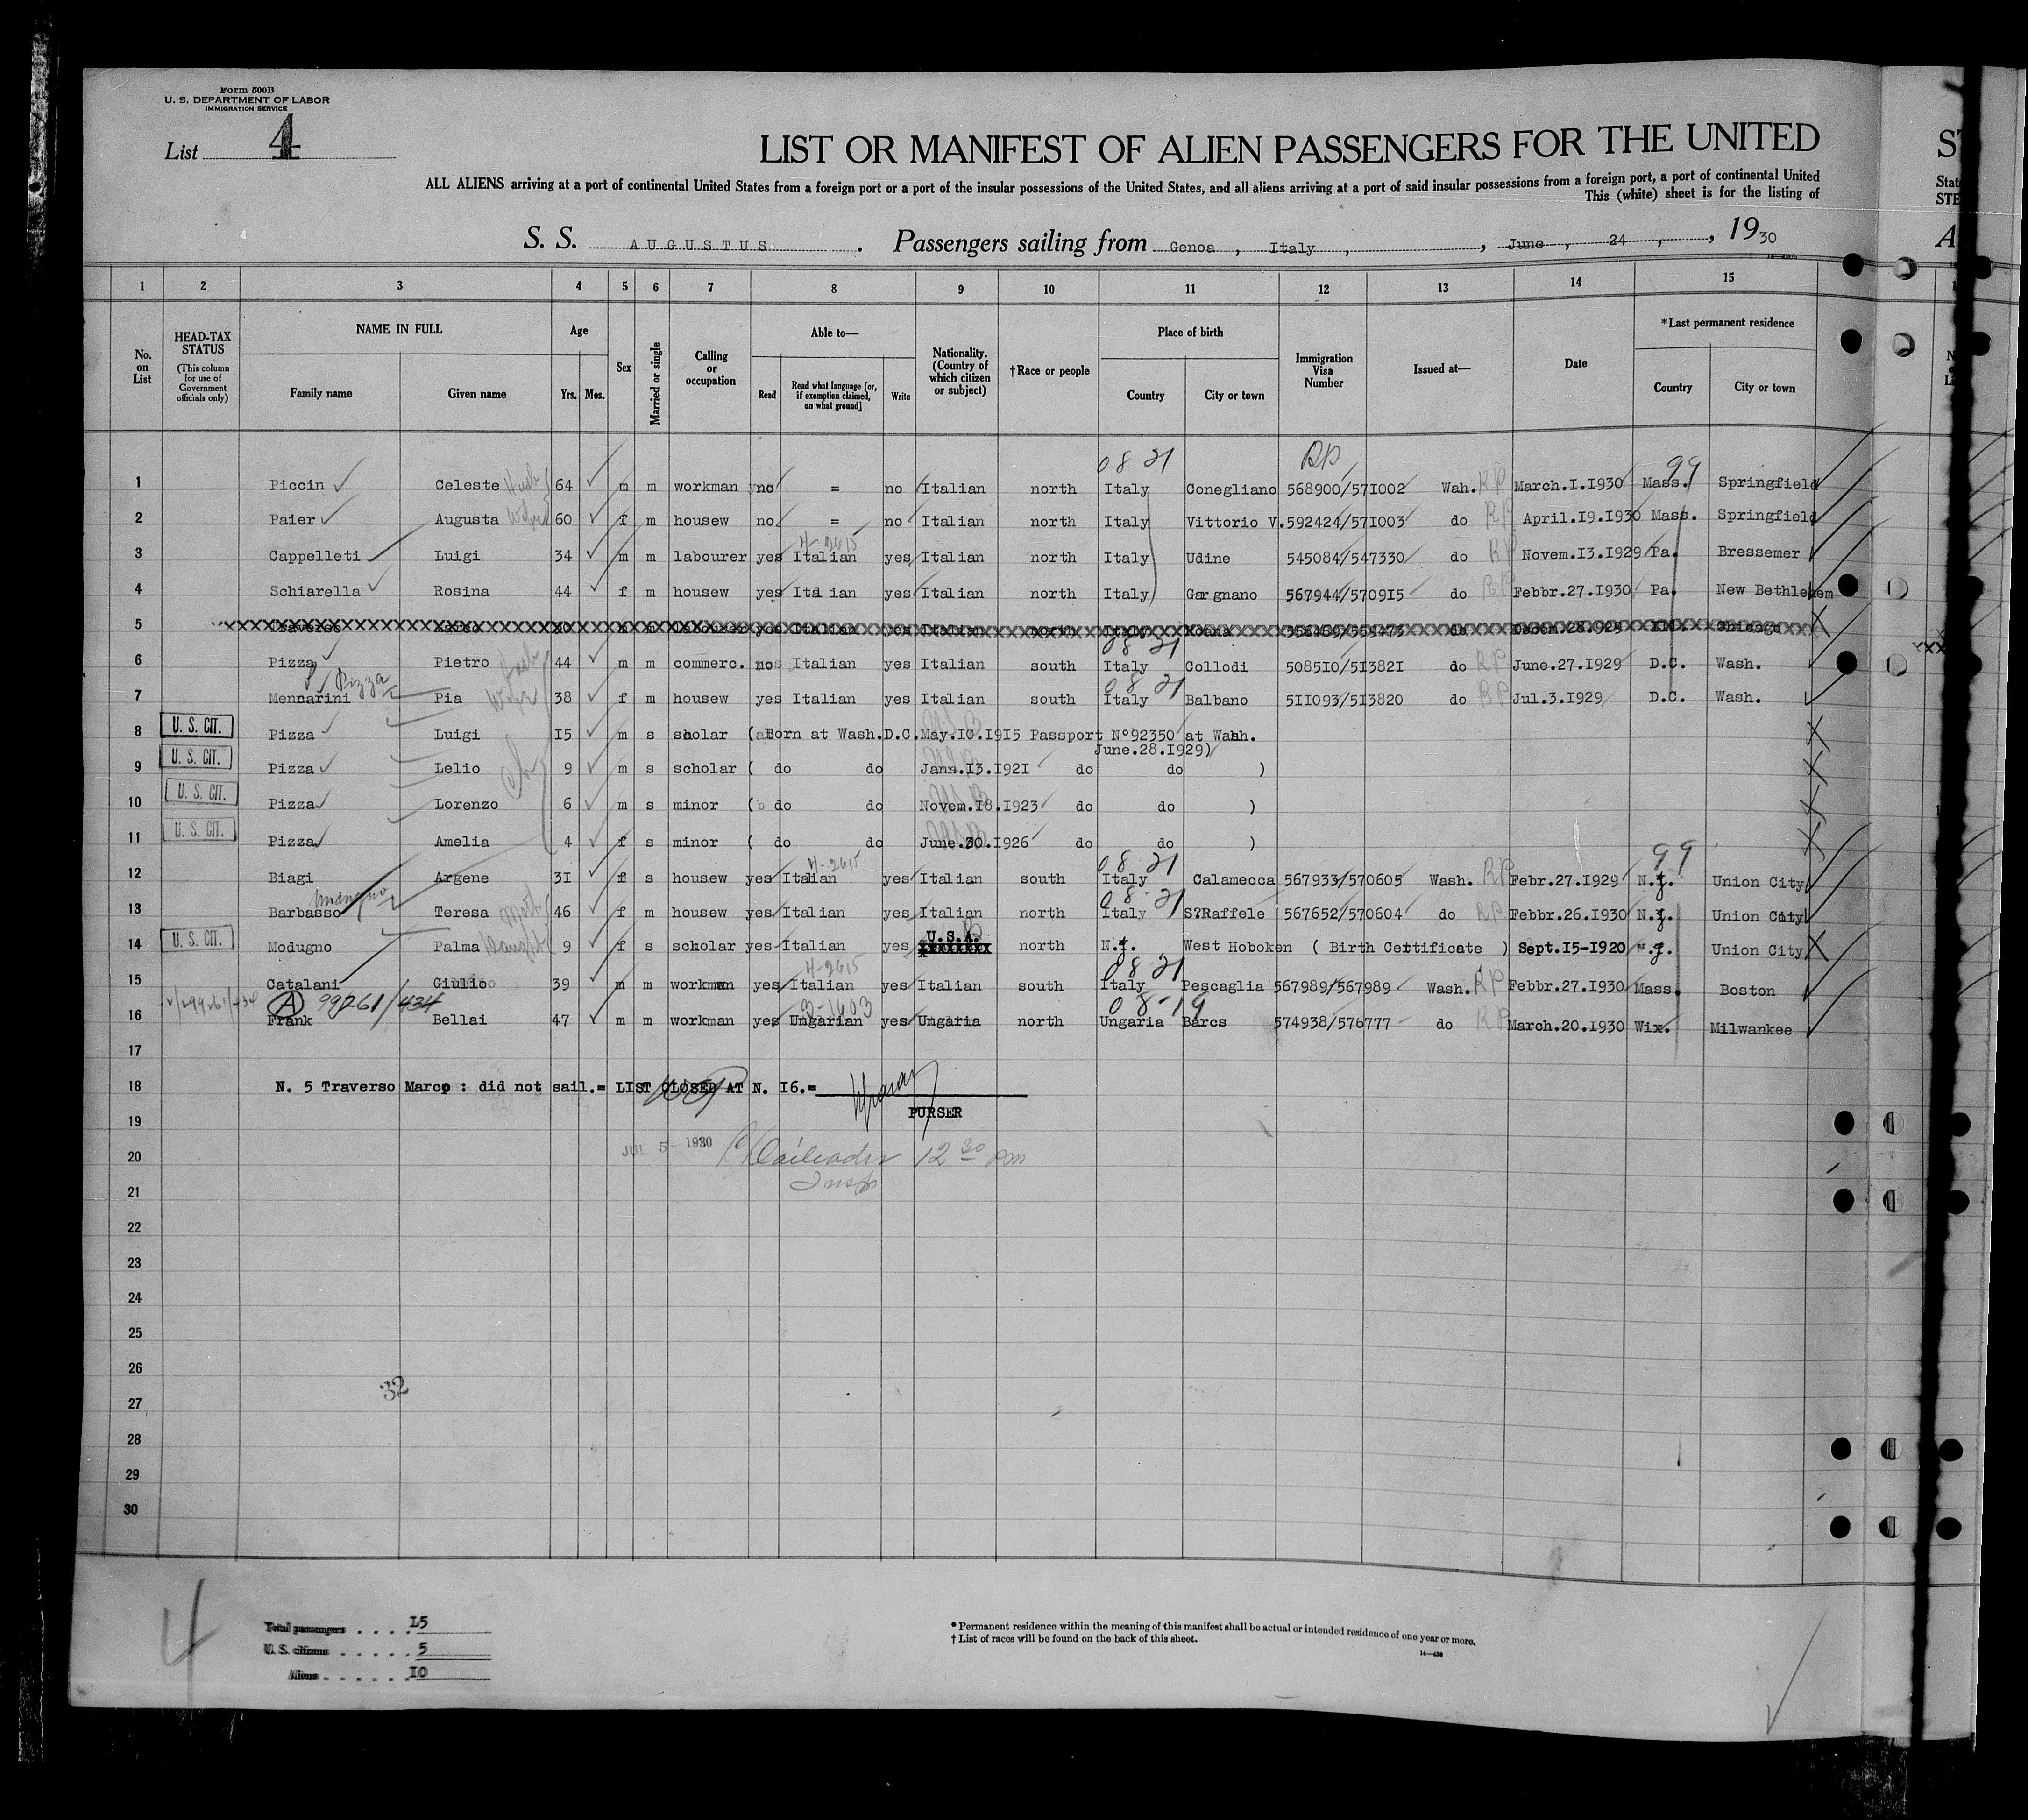 Form 500B
U. S. DEPARTMENT OF LABOR
IMMIGRATION SERVICE
List 4
LIST OR MANIFEST OF ALIEN PASSENGERS FOR THE UNITED
ALL ALIENS arriving at a port of continental United States from a foreign port or a port of the insular possessions of the United States, and all aliens arriving at a port of said insular possessions from a foreign port, a port of continental United
This (white) sheet is for the listing of
S. S. AUGUSTUS. Passengers sailing from Genoa, Italy, June, 24, 1930
1 2 3 4 5 6 7 8 9 10 11 12 13 14 15
No. on List HEAD-TAX STATUS (This column for use of Government officials only) NAME IN FULL Family name Given name Age Yrs. Mos. Sex Married or single Calling or occupation Able to— Read Read what language [or, if exemption claimed, on what ground] Write Nationality. (Country of which citizen or subject) †Race or people Place of birth Country City or town Immigration Visa Number Issued at— Date *Last permanent residence Country City or town
08 21 RP 99
1 Piccin Celeste Husb 64 m m workman no = no Italian north Italy Conegliano 568900/571002 Wah. RP March.I.1930 Mass. Springfield
2 Paier Augusta Wife 60 f m housew no = no Italian north Italy Vittorio V. 592424/571003 do RP April.19.1930 Mass. Springfield
4-2615
3 Cappelleti Luigi 34 m m labourer yes Italian yes Italian north Italy Udine 545084/547330 do RP Novem.13.1929 Pa. Bressemer
4 Schiarella Rosina 44 f m housew yes Itd ian yes Italian north Italy Gargnano 567944/570915 do RP Febbr.27.1930 Pa. New Bethlehem
5 Traverso Marco labourer yes Italian yes Italian north Italy do Decem.28.929 Ill. Chicago
08 21
6 Pizza Pietro Husb 44 m m commerc. no Italian yes Italian south Italy Collodi 508510/513821 do RP June.27.1929 D.C. Wash.
Pizza 08 21
7 Mennarini Pia Wife 38 f m housew yes Italian yes Italian south Italy Balbano 511093/513820 do RP Jul.3.1929 D.C. Wash.
8 U. S. CIT. Pizza Luigi 15 m s scholar (Born at Wash.D.C.May.10.1915 Passport N°92350 at Wash.
June.28.1929)
9 U. S. CIT. Pizza Lelio 9 m s scholar ( do do Jann.13.1921 do do )
10 U. S. CIT. Pizza Lorenzo 6 m s minor ( do do Novem.18.1923 do do )
11 U. S. CIT. Pizza Amelia 4 f s minor ( do do June.30.1926 do do )
4-2615 08 21 99
12 Biagi Argene 31 f s housew yes Italian yes Italian south Italy Calamecca 567933/570605 Wash. RP Febr.27.1929 N.J. Union City
Modugno 08-21
13 Barbasso Teresa Moth 46 f m housew yes Italian yes Italian north Italy S?Raffele 567652/570604 do RP Febbr.26.1930 N.J. Union City
U.S.A.
14 U. S. CIT. Modugno Palma Daught 9 f s scholar yes Italian yes xxxxxxx north N.J. West Hoboken ( Birth Certificate ) Sept.15-1920 N.J. Union City
4-2615 08 21
15 Catalani Giulio 39 m m workman yes Italian yes Italian south Italy Pescaglia 567989/567989 Wash. RP Febbr.27.1930 Mass. Boston
A 99261/434 3-1603 08-19
16 Frank Bellai 47 m m workman yes Ungarian yes Ungaria north Ungaria Barcs 574938/576777 do RP March.20.1930 Wix. Milwankee
17
18 N. 5 Traverso Marco : did not sail.= LIST CLOSED AT N. 16.=
19 PURSER
JUL 5- 1930
20 12 30 pm
21 Insp
22
23
24
25
26
32
27
28
29
30
4
Total passengers . . . . 15
U. S. citizens . . . . . 5
Aliens . . . . . . 10
* Permanent residence within the meaning of this manifest shall be actual or intended residence of one year or more.
† List of races will be found on the back of this sheet.
14—430